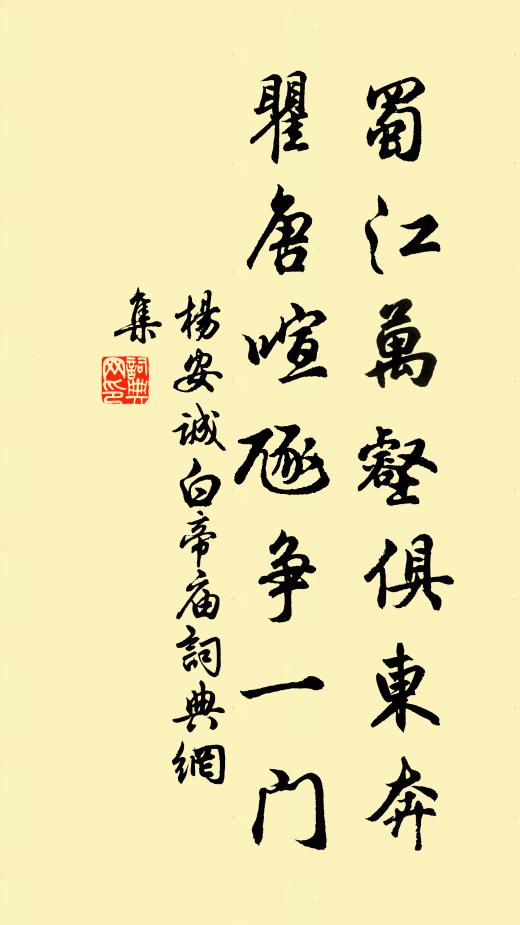 蜀江萬壑俱東奔
瞿唐喧豗争一门
楊安誠白帝庙詞典網
集
詞典
网印